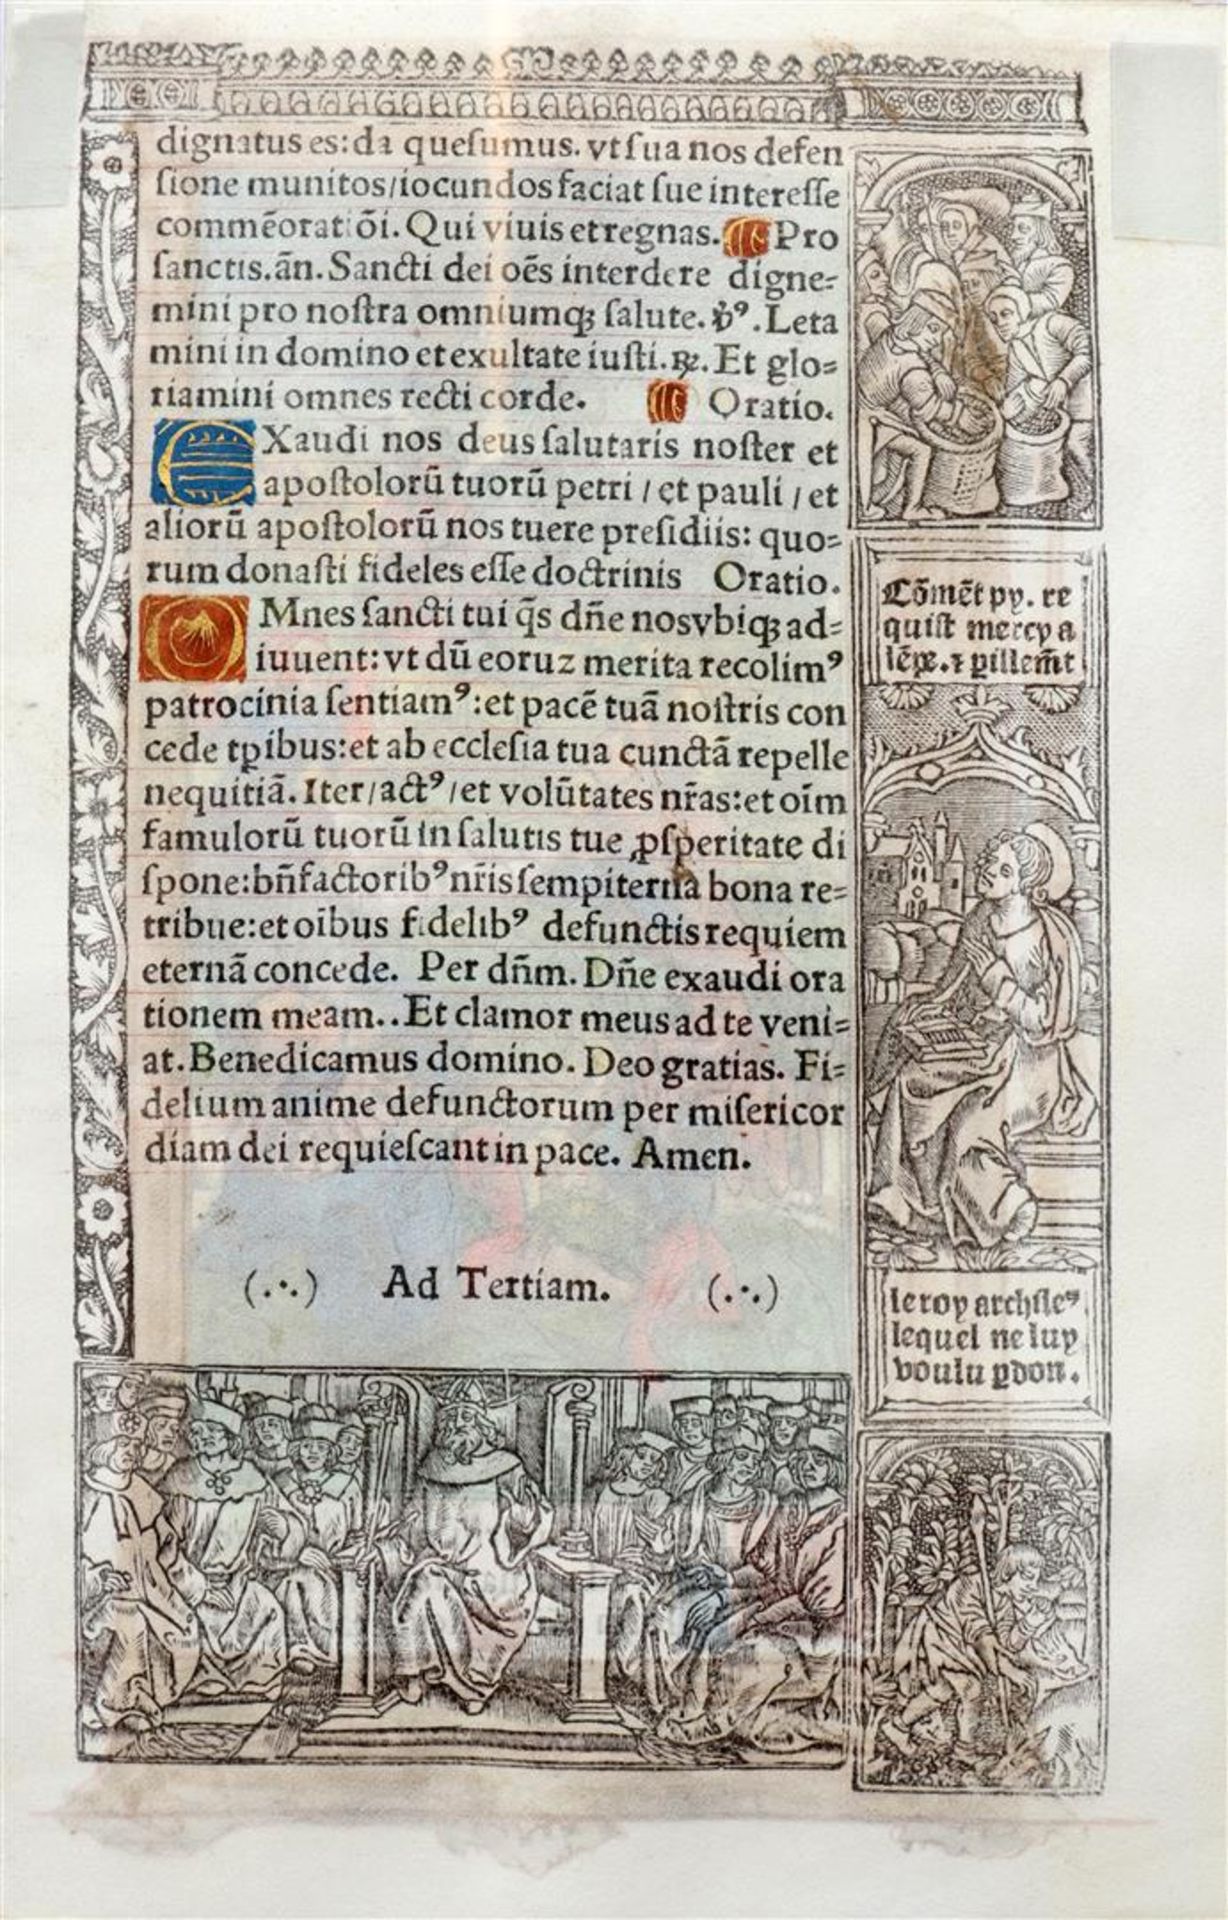 dignatus es: da queſumus. vt ſua nos defen
ſione munitos/iocundos faciat ſue intereſſe
commẽoratiõi. Qui viuis et regnas. Pro
ſanctis. ãn. Sancti dei oẽs interdere digne⸗
mini pro noſtra omniumqꝫ ſalute. ℣ꝰ. Leta
mini in domino et exultate iuſti. ℞. Et glo⸗
riamini omnes recti corde. Oratio.
EXaudi nos deus ſalutaris noſter et
apoſtolorũ tuorũ petri / et pauli / et
aliorũ apoſtolorũ nos tuere preſidiis: quo⸗
rum donaſti fideles eſſe doctrinis Oratio.
OMnes ſancti tui q̃s dñe nos vbiqꝫ ad⸗
iuuent: vt dũ eoruz merita recolimꝰ
patrocinia ſentiamꝰ: et pacẽ tuã noſtris con
cede tꝑibus: et ab eccleſia tua cunctã repelle
nequitiã. Iter/actꝰ/et volũtates nr̃as: et oĩm
famulorũ tuorũ in ſalutis tue ꝓſperitate di
ſpone: bñfactoribꝰ nr̃is ſempiterna bona re⸗
tribue: et oĩbus fidelibꝰ defunctis requiem
eternã concede. Per dñm. Dñe exaudi ora
tionem meam.. Et clamor meus ad te veni⸗
at. Benedicamus domino. Deo gratias. Fi⸗
delium anime defunctorum per miſericor
diam dei requieſcant in pace. Amen.
(.·.) Ad Tertiam. (.·.)
Cõmẽt py. re
quiſt mercy a
lẽpe. ⁊ pillem̃t
le roy archſleꝰ
lequel ne luy
voulu ꝑdon.